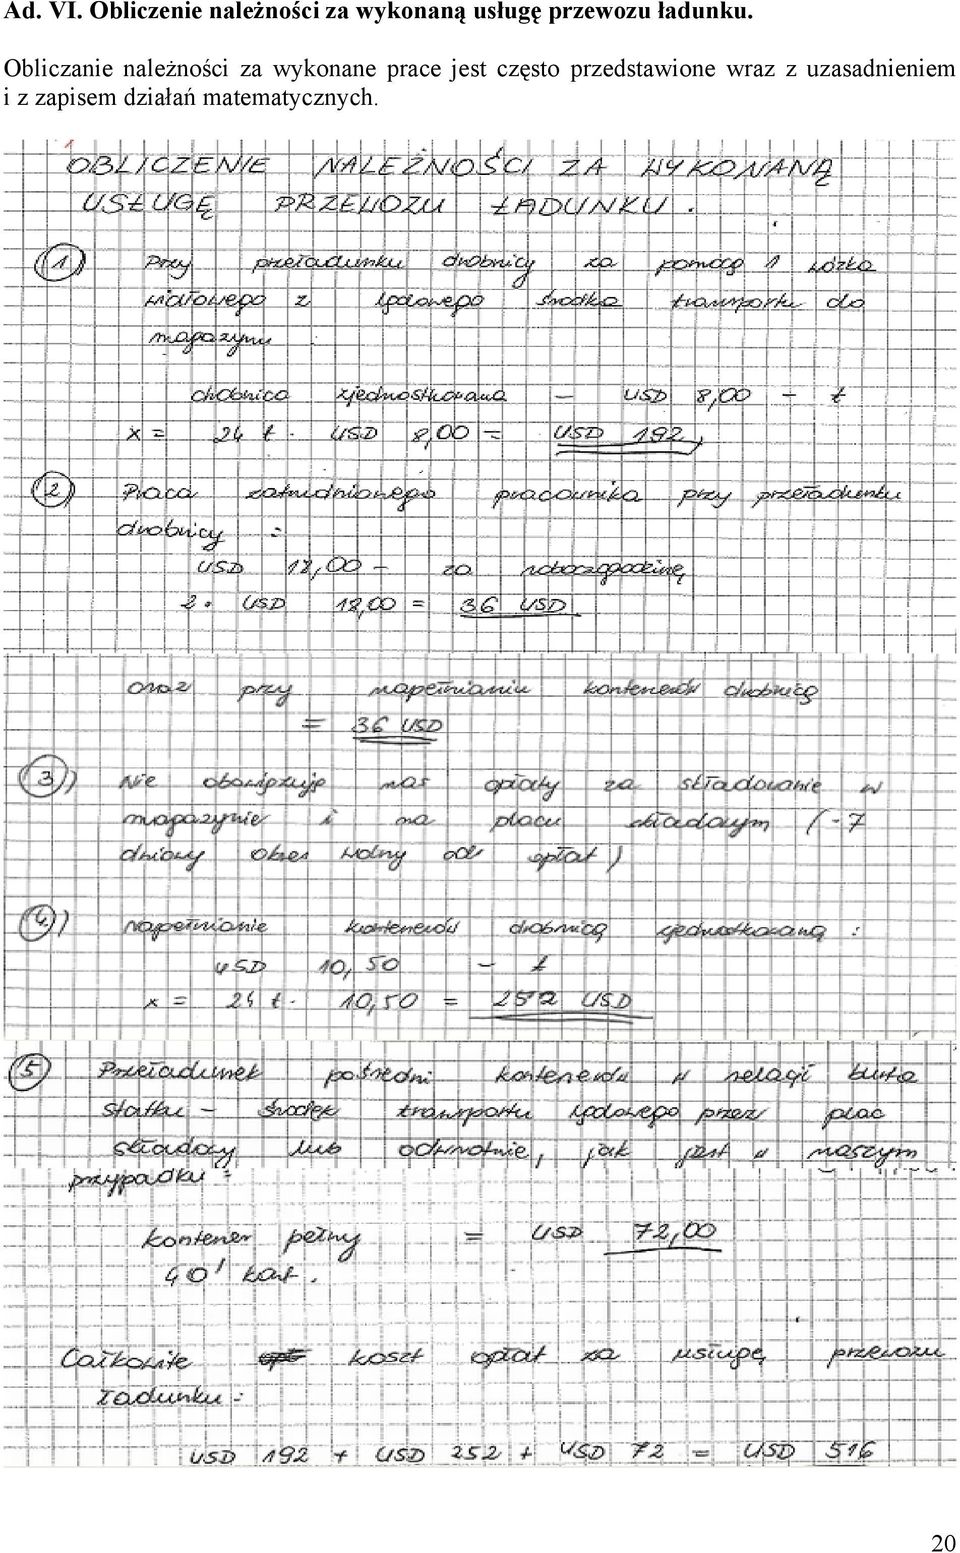 Ad. VI. Obliczenie należności za wykonaną usługę przewozu ładunku.
Obliczanie należności za wykonane prace jest często przedstawione wraz z uzasadnieniem
i z zapisem działań matematycznych.
OBLICZENIE NALEŻNOŚCI ZA WYKONANĄ
USŁUGĘ PRZEWOZU ŁADUNKU.
1) Przy przeładunku drobnicy za pomocą 1 wózka
widłowego z lądowego środka transportu do
magazynu
drobnica zjednostkowana - USD 8,00 - t
x = 24 t. USD 8,00 = USD 192,
2) Praca zatrudnionego pracownika przy przeładunku
drobnicy =
USD 18,00 - za roboczogodzinę
2. USD 18,00 = 36 USD
oraz przy napełnianiu kontenerów drobnicą
= 36 USD
3)) Nie obowiązuje nas opłaty za składowanie w
magazynie i na placu składowym (-7
dniowy okres wolny od opłat)
4)) Napełnianie kontenerów drobnicą zjednostkowaną :
USD 10,50 - t
x = 24 t. 10,50 = 252 USD
5 Przeładunek pośredni kontenerów w relacji burta
statku - środek transportu lądowego przez plac
składowy lub odwrotnie, jak jest w naszym
przypadku =
kontener pełny = USD 72,00
40'
Całkowite koszt opłat za usługę przewozu
ładunku =
USD 192 + USD 252 + USD 72 = USD 516
20